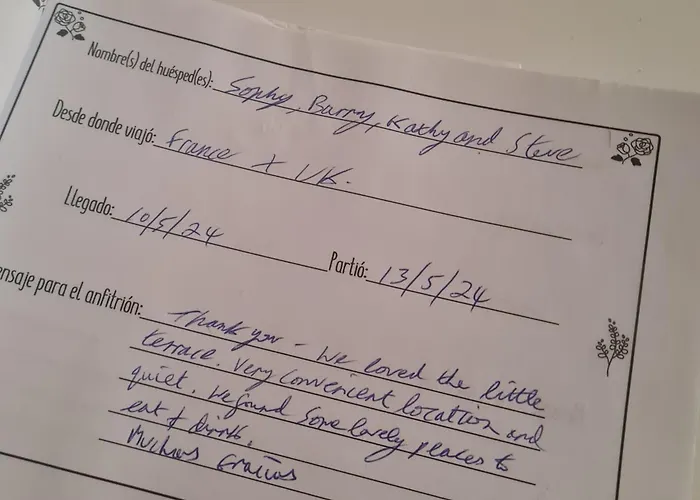 Nombre(s) del huésped(es): Sophy, Barry, Kathy and Steve
Desde donde viajó: France + UK.
Llegado: 10/5/24
Partió: 13/5/24
ensaje para el anfitrión: Thank you - We loved the little
terrace. Very convenient location and
quiet. We found some lovely places to
eat + drink.
Muchas Gracias